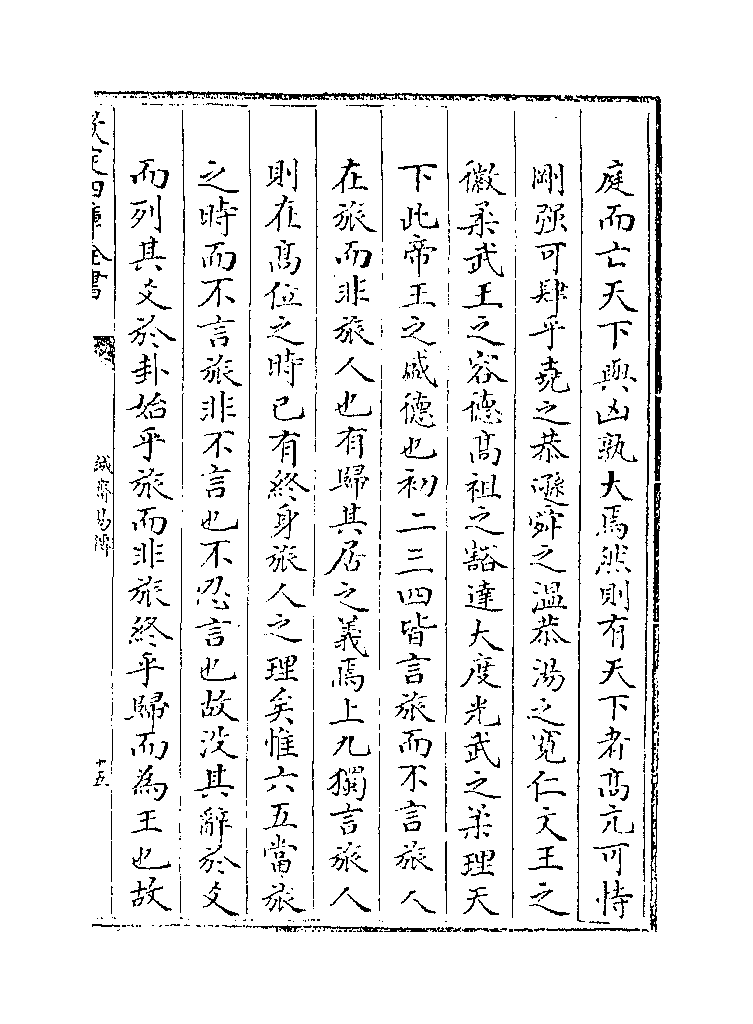 庭而亡天下與凶孰大焉然則有天下者高亢可恃
剛强可肆乎堯之恭遜舜之温恭湯之寛仁文王之
徽柔武王之容德高祖之豁達大度光武之柔理天
下此帝王之盛德也初二三四皆言旅而不言旅人
在旅而非旅人也有歸其居之義焉上九獨言旅人
則在高位之時已有終身旅人之理矣惟六五當旅
之時而不言旅非不言也不忍言也故没其辭於爻
而列其爻於卦始乎旅而非旅終乎歸而為王也故
欽定四庫全書
誠齋易傳
十五